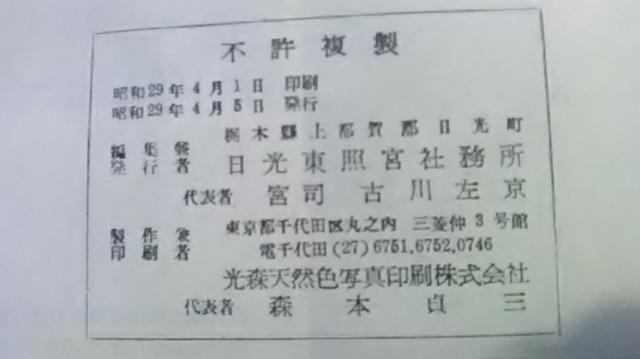 不許複製
昭和29年4月1日 印刷
昭和29年4月5日 発行
栃木縣上都賀郡日光町
編集兼
発行者 日光東照宮社務所
代表者 宮司 古川左京
東京都千代田区丸之内 三菱仲3号館
製作兼
印刷者 電千代田(27)6751,6752,0746
光森天然色写真印刷株式会社
代表者 森本貞三